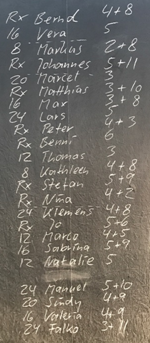 Rx Bernd 4+8
16 Vera 5
8 Markus 2+8
Rx Johannes 5+11
20 Marcel 3
Rx Matthias 3+10
16 Max 3+8
24 Lars 6+3
Rx Peter 6
Rx Benni
12 Thomas 3
8 Kathleen 4+8
Rx Stefan 5+9
Rx Nina 4+2
24 Klemens 4+8
Rx Jo 5+6
12 Marco 4+5
16 Sabrina 5+9
12 Natalie 5
24 Manuel 5+10
20 Sindy 4+9
16 Valeria 4+9
24 Falko 3+11